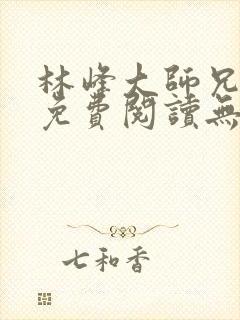 林峰大師兄
免費閱讀無
七和香